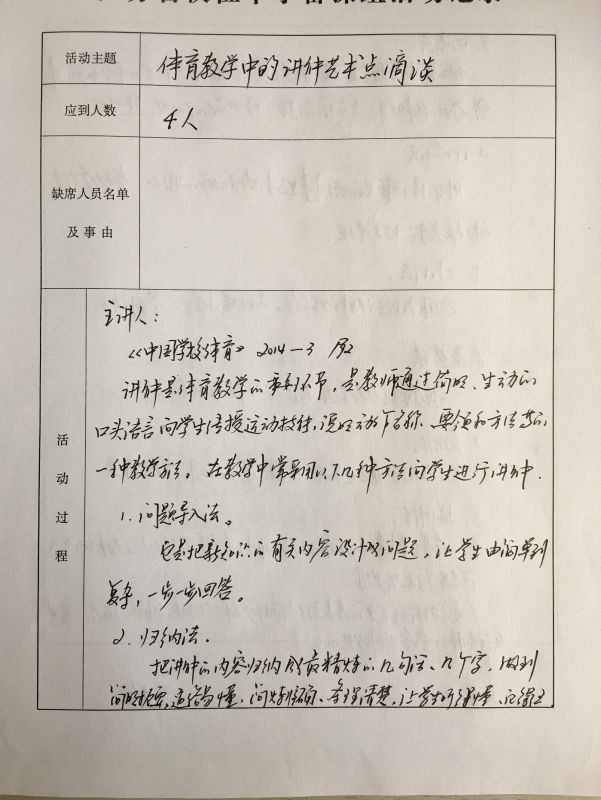 活动主题 体育教学中的讲解艺术点滴谈
应到人数 4人
缺席人员名单
及事由
活动过程
主讲人：
《中国学校体育》 2014-3
讲解是体育教学的重要环节，是教师通过简明、生动的
口头语言向学生传授运动技术，说明动作名称、要领和方法等的
一种教学方法。在教学中常采用以下几种方法向学生进行讲解.
1.问题导入法。
它是把新知识的有关内容设计成问题，让学生由简单到
复杂，一步一步回答。
2.归纳法.
把讲解的内容归纳成最精炼的几句话、几个字，做到
简明扼要，通俗易懂，简炼准确、条理清楚，让学生听得懂、记得主